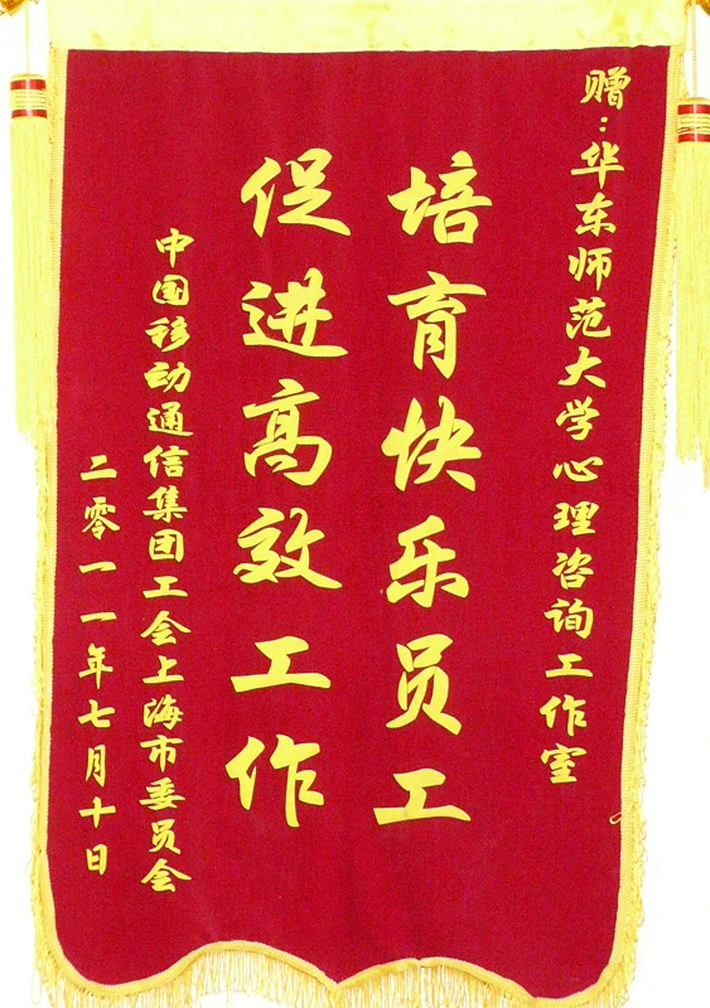 赠:华东师范大学心理咨询工作室
培育快乐员工
促进高效工作
中国移动通信集团工会上海市委员会
二零一一年七月十日